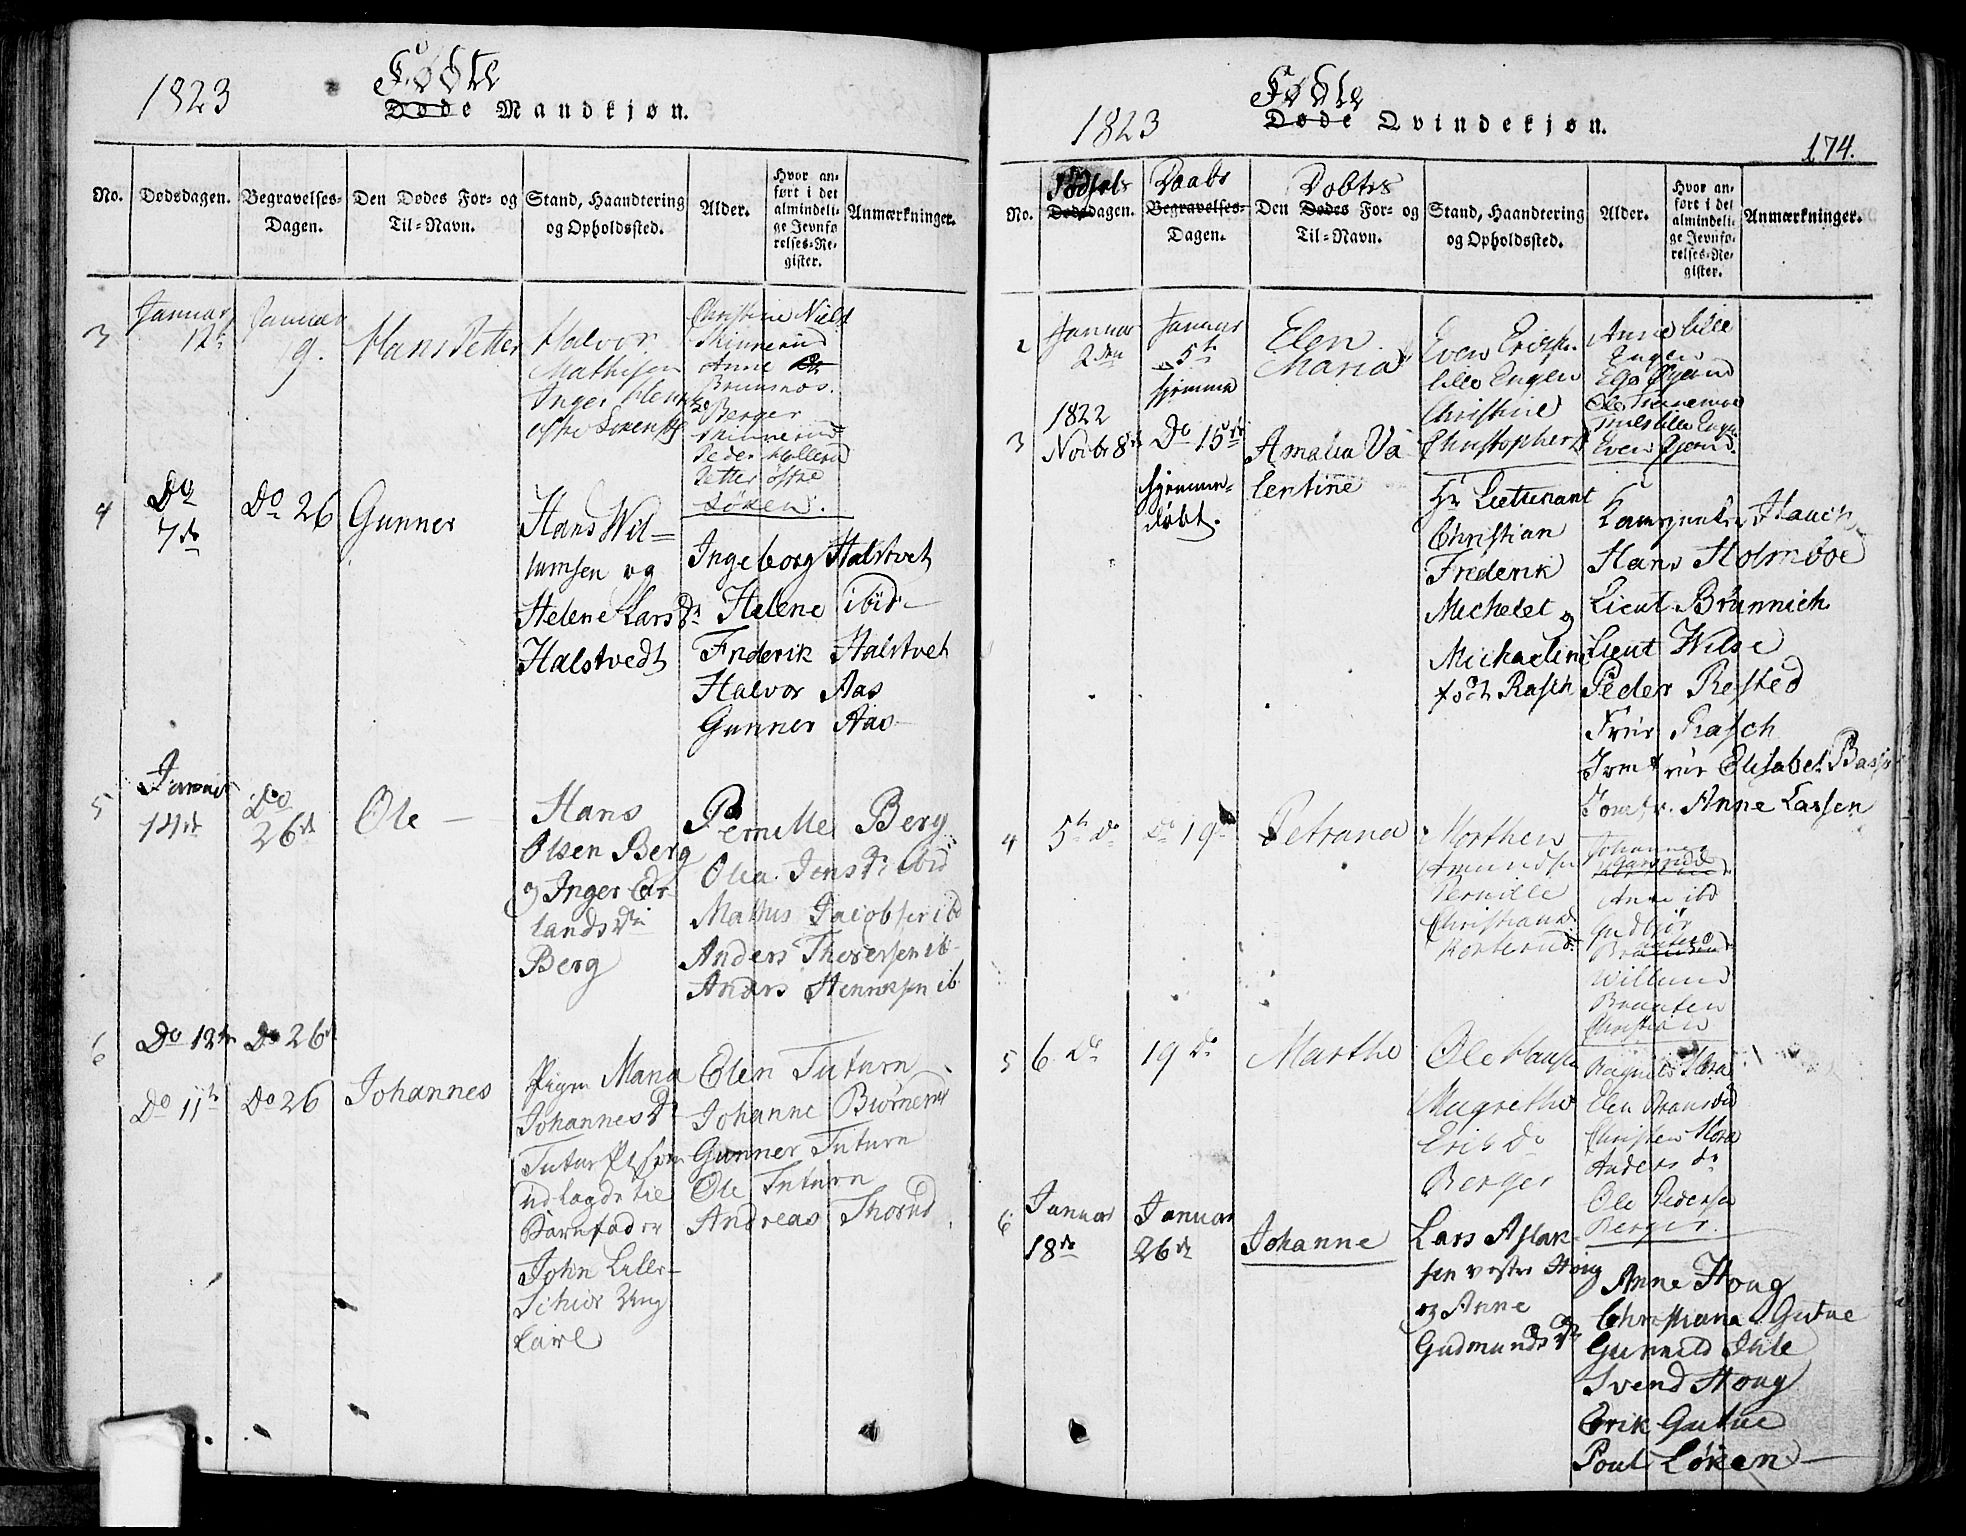 1823
Fødte
Døde Mandkjøn.
No.
Dødsdagen.
Begravelses-
Dagen.
Den Dødes For- og
Til-Navn.
Stand, Haandtering
og Opholdssted.
Alder.
Hvor an-
ført i det
almindeli-
ge Jevnfø
relses-Re-
gister.
Anmærkninger.
3
Januar
12t
Januar
9.
Hans Petter
Halvor
Mathisen
Inger
østre
Christine Niels
Skinnerud
Anne
Brunsnos.
Berger
Skinnerud
Peder
Petter østre
Løken.
4
Do
7de
Do 26
Gunner
Hans Wil=
lumsen og
Helene Lars Dr
Halstvedt
Ingeborg Halstvet
Helene ibid
Friderik Halstvet
Halvor Aas
Gunner Aas
5
Januar
14de
Do
26de
Ole
Hans
Olsen Berg
og Inger Er
lands Dr
Berg
Pernille Berg
Olea Jens Dr ibid
Mathis Jacobsen ibd
Anders Thoresen ib
Anders Henriksen ib
6
Do 12te
Do 26de
Do 11te
Do 26
Johannes
Pigen Maria
Johannes Dr
Tuturn
udlagde til
Barnefader
John Lille-
Schiør Ung
karl
Elen Tuturn
Johanne Biørnerud
Gunner Tuturn
Ole Tuturn
Andreas Thorud
1823
Fødte
Døde Qvindekjøn.
174.
No.
Fødsels
Dødsdagen.
Daabs
Begravelses-
Dagen.
Døbtes
Den Dødes For- og
Til-Navn.
Stand, Haandtering
og Opholdssted.
Alder.
Hvor an-
ført i det
almindeli-
ge Jevnfø-
relses-Re-
gister.
Anmærkninger.
2
Januar
2den
Januar
5te
hjemme
Elen
Maria
Even Eriks.
lille Engen
Christine
Christophers
Anne lille
Engen
Else Gjerud
Even Gjerud.
3
1822
Novbr 8de
Do 15de
hjemme-
døbt.
Amalia Va
lentine
Hr Lieutenant
Christian
Frederik
Michelet og
Michaeline
født Rasch
Hauch
Hans Holmboe
Lieut Brünnich
Lieut Wilse
Peder Rested
Frue Rasch
Jomfrue Elisabet Basse
Jomfr. Anne Lassen
4
5te Do
Do 19de
Petrana
Morthen
Amundsen
Pernille
Christians
Korterud.
Johannes
Anne ibd
Gudbrør
Braaten
Willum
Braaten
Christian
5
6 Do
19 Do
Marthe
Ole Hansen
Magrethe
Eriks Dr
Berger
Ragnild Mora
Elen
Christen Mora
Anders Do
Ole Pedersen
Berger.
6
Januar
18de
Januar
26de
Johanne
Lars Aslak-
sen vestre Houg
og Anne
Gudmunds Dr
Anne Houg
Christiana Gutue
Gunnild Ihle
Svend Houg
Erik Gutue
Poul Løken